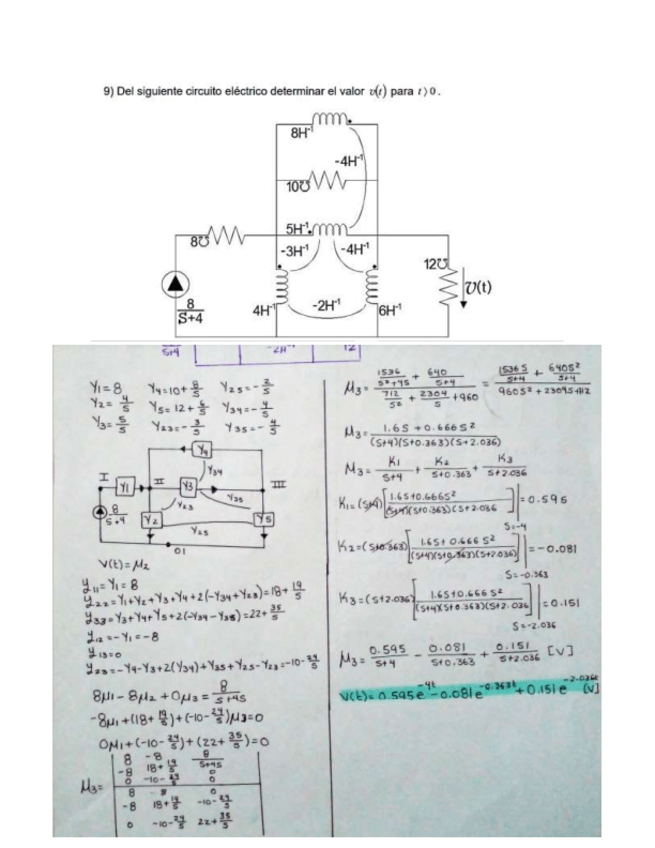 9) Del siguiente circuito eléctrico determinar el valor v(t) para t⟩0.
8H⁻¹
-4H⁻¹
10℧
5H⁻¹
8℧
-3H⁻¹
-4H⁻¹
12℧
8/(S+4)
4H⁻¹
-2H⁻¹
6H⁻¹
V(t)
S+4
-2H⁻¹
12
Y1=8 Y4=10+8/S Y25=-2/S
Y2=4/S Y5=12+6/S Y34=-4/S
Y3=5/S Y23=-3/S Y35=-4/S
Y4
Y34
I Y1 II Y3 III
Y35
8/(S+4)
Y23
Y2 Y5
Y25
01
V(t)=μ2
y11=Y1=8
y22=Y1+Y2+Y3+Y4+2(-Y34+Y23)=18+19/S
y33=Y3+Y4+Y5+2(-Y34-Y35)=22+35/S
y12=-Y1=-8
y13=0
y23=-Y4-Y3+2(Y34)+Y35+Y25-Y23=-10-24/S
8μ1-8μ2+0μ3=8/(S+4S)
-8μ1+(18+19/S)+(-10-24/S)μ3=0
0μ1+(-10-24/S)+(22+35/S)=0
8 -8 8/(S+4S)
-8 18+19/S 0
0 -10-24/S 0
μ3=
8 -8 0
-8 18+19/S -10-24/S
0 -10-24/S 22+35/S
μ3= (1536/(S²+4S) + 640/(S+4)) / (712/S² + 2304/S +960) = (1536S/(S+4) + 640S²/(S+4)) / (960S²+2304S+712)
μ3= (1.6S+0.666S²)/((S+4)(S+0.363)(S+2.036))
μ3= K1/(S+4) + K2/(S+0.363) + K3/(S+2.036)
K1=(S+4)[(1.6S+0.666S²)/((S+4)(S+0.363)(S+2.036)]|=0.595
S=-4
K2=(S+0.363)[(1.6S+0.666S²)/((S+4)(S+0.363)(S+2.036)]|=-0.081
S=-0.363
K3=(S+2.036)[(1.6S+0.666S²)/((S+4)(S+0.363)(S+2.036)]|=0.151
S=-2.036
μ3= 0.595/(S+4) - 0.081/(S+0.363) + 0.151/(S+2.036) [V]
V(t)=0.595e^-4t-0.081e^-0.363t+0.151e^-2.036t [V]